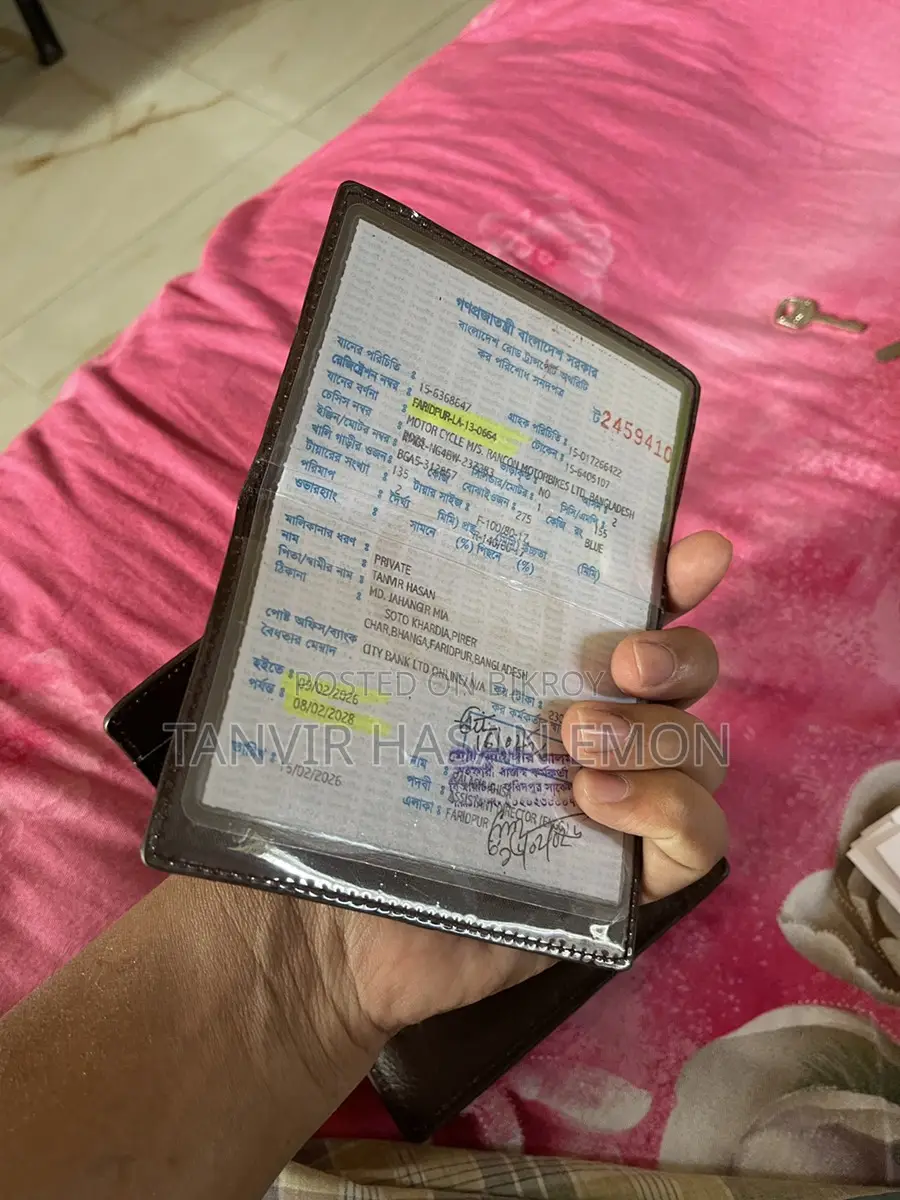 গণপ্রজাতন্ত্রী বাংলাদেশ সরকার
বাংলাদেশ রোড ট্রান্সপোর্ট অথরিটি
কর পরিশোধ সনদপত্র
ট 2459410
যানের পরিচিতি : 15-6368647 গ্রাহক পরিচিতি : 15-017266422
রেজিস্ট্রেশন নম্বর : FARIDPUR-LA-13-0664 টোকেন : 15-6405107
যানের বর্ণনা : MOTOR CYCLE M/S. RANCON MOTORBIKES LTD, BANGLADESH
চেসিস নম্বর :
ইঞ্জিন/মোটর নম্বর : সিলিন্ডার/মোটর : 1 সিসি/এমপি : 155
খালি গাড়ীর ওজন : 135 কেজি বোঝাইওজন : 275 কেজি রং : BLUE
টায়ারের সংখ্যা : 2 টায়ার সাইজ : F-100/80-17
পরিমাপ : দৈর্ঘ্য (মিমি) প্রস্থ উচ্চতা (মিমি)
ওভারহ্যাং : সামনে (%) পিছনে (%)
মালিকানার ধরণ : PRIVATE
নাম : TANVIR HASAN
পিতা/স্বামীর নাম : MD. JAHANGIR MIA
ঠিকানা : SOTO KHARDIA,PIRER
CHAR,BHANGA,FARIDPUR,BANGLADESH
পোষ্ট অফিস/ব্যাংক CITY BANK LTD ONLINE/ N/A
বৈধতার মেয়াদ কর (টাকা :
হইতে : 09/02/2026
পর্যন্ত : 08/02/2028
তারিখ : 15/02/2026
নাম :
পদবী : ASSISTANT DIRECTOR (ENGG)
এলাকা : FARIDPUR
POSTED ON BIKROY
TANVIR HASAN LEMON